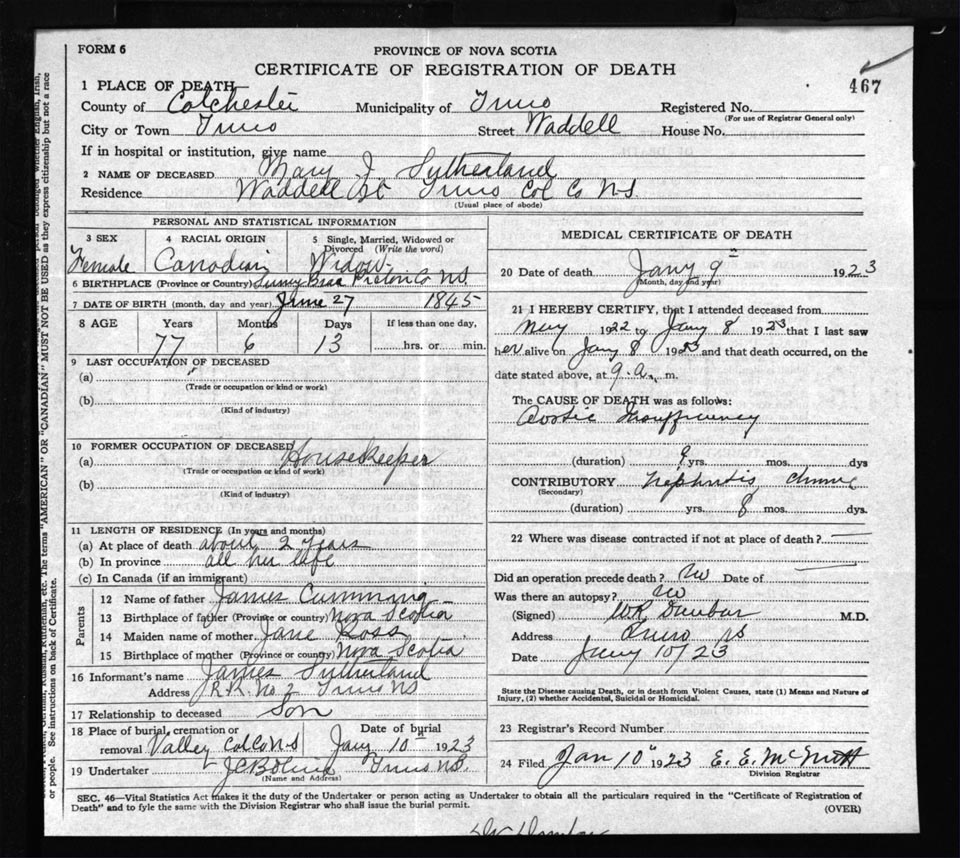 FORM 6
PROVINCE OF NOVA SCOTIA
CERTIFICATE OF REGISTRATION OF DEATH
467
1 PLACE OF DEATH
County of Colchester Municipality of Truro Registered No.
(For use of Registrar General only)
City or Town Truro Street Waddell House No.
If in hospital or institution, give name
2 NAME OF DECEASED Mary J Sutherland
Residence Waddell St Truro Col Co N.S.
(Usual place of abode)
PERSONAL AND STATISTICAL INFORMATION
3 SEX 4 RACIAL ORIGIN 5 Single, Married, Widowed or
Divorced (Write the word)
Female Canadian Widow
6 BIRTHPLACE (Province or Country) Sunny Brae Pictou Co N.S.
7 DATE OF BIRTH (month, day and year) June 27 1845
8 AGE Years Months Days If less than one day,
77 6 13 hrs. or min.
9 LAST OCCUPATION OF DECEASED
(a)
(Trade or occupation or kind or work)
(b)
(Kind of industry)
10 FORMER OCCUPATION OF DECEASED
(a) Housekeeper
(Trade or occupation or kind of work)
(b)
(Kind of industry)
11 LENGTH OF RESIDENCE (In years and months)
(a) At place of death about 2 years
(b) In province all her life
(c) In Canada (if an immigrant)
Parents
12 Name of father James Cumming
13 Birthplace of father (Province or country) Nova Scotia
14 Maiden name of mother Jane Ross
15 Birthplace of mother (Province or country) Nova Scotia
16 Informant's name James Sutherland
Address R.R. No 2 Truro NS
17 Relationship to deceased Son
18 Place of burial, cremation or Date of burial
removal Valley Col Co N.S Jany 10 1923
19 Undertaker Truro N.S.
(Name and Address)
MEDICAL CERTIFICATE OF DEATH
20 Date of death Jany 9th 1923
(Month, day and year)
21 I HEREBY CERTIFY, that I attended deceased from
1922 to Jany 8 1923 that I last saw
her alive on Jany 8 1923 and that death occurred, on the
date stated above, at 9 a. m.
The CAUSE OF DEATH was as follows:
Aortic Insufficiency
(duration) 9 yrs. mos. dys
CONTRIBUTORY Nephritis chronic
(Secondary)
(duration) yrs. 8 mos. dys.
22 Where was disease contracted if not at place of death?
Did an operation precede death? No Date of
Was there an autopsy? No
(Signed) W.R. Dunbar M.D.
Address Truro NS
Date Jany 10/23
State the Disease causing Death, or in death from Violent Causes, state (1) Means and Nature of
Injury, (2) whether Accidental, Suicidal or Homicidal.
23 Registrar's Record Number
24 Filed Jan 10th 1923 E. E. McNutt
Division Registrar
SEC. 46—Vital Statistics Act makes it the duty of the Undertaker or person acting as Undertaker to obtain all the particulars required in the "Certificate of Registration of
Death" and to fyle the same with the Division Registrar who shall issue the burial permit.
(OVER)
Ruthenian, etc. The terms "AMERICAN" OR "CANADIAN" MUST NOT BE USED as they express citizenship but not a race
or people. See instructions on back of Certificate.
Dr Dunbar